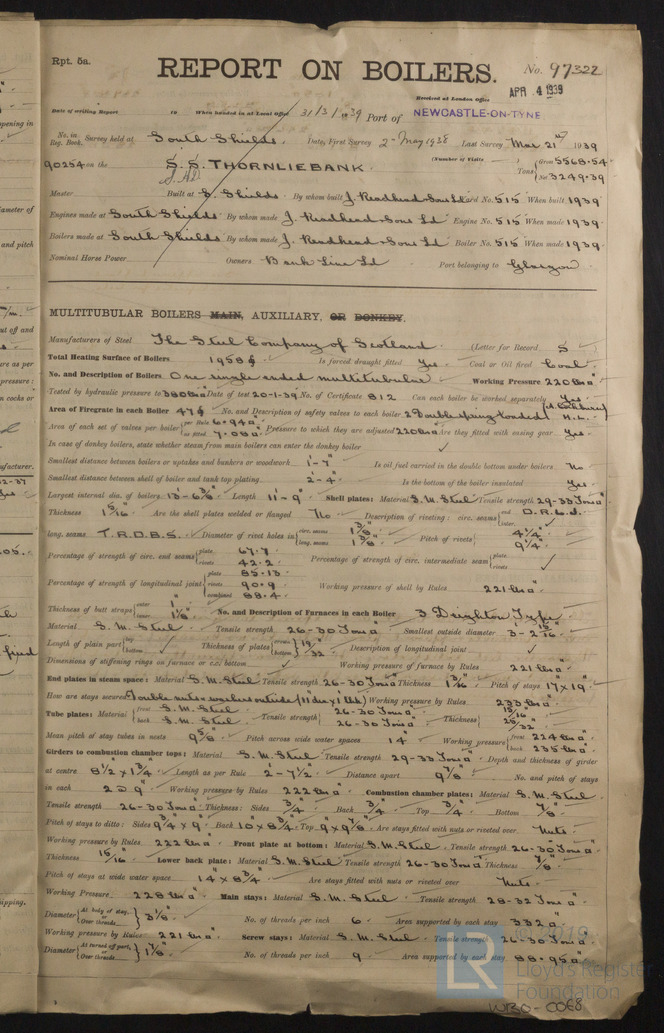 Rpt. 5a.
REPORT ON BOILERS.
No. 97322
Received at London Office
APR 4 1939
Date of writing Report to When handed in at Local Office 31/3/1939 Port of NEWCASTLE-ON-TYNE
No. in Reg. Book. Survey held at South Shields Date, First Survey 2nd May 1938 Last Survey Mar 21st 1939
90254 on the S.S. THORNLIEBANK (Number of Visits Tons Gross 5568.54 Net 3249.39
Master Built at S. Shields By whom built J. Readhead & Sons Ld Yard No. 515 When built 1939
Engines made at South Shields By whom made J. Readhead & Sons Ld Engine No. 515 When made 1939
Boilers made at South Shields By whom made J. Readhead & Sons Ld Boiler No. 515 When made 1939
Nominal Horse Power Owners Bank Line Ld Port belonging to Glasgow
MULTITUBULAR BOILERS MAIN, AUXILIARY, OR DONKEY.
Manufacturers of Steel The Steel Company of Scotland (Letter for Record S
Total Heating Surface of Boilers 1958 Is forced draught fitted Yes Coal or Oil fired Coal
No. and Description of Boilers One single ended multitubular Working Pressure 220 lbs
Tested by hydraulic pressure to 380 lbs Date of test 20-1-39 No. of Certificate 812 Can each boiler be worked separately Yes
Area of Firegrate in each Boiler 47 No. and Description of safety valves to each boiler 2 Double spring loaded H.L.
Area of each set of valves per boiler per Rule 6.94 as fitted 7.08 Pressure to which they are adjusted 220 lbs Are they fitted with easing gear Yes
In case of donkey boilers, state whether steam from main boilers can enter the donkey boiler ✓
Smallest distance between boilers or uptakes and bunkers or woodwork 1'-7" Is oil fuel carried in the double bottom under boilers No
Smallest distance between shell of boiler and tank top plating 2'-4" Is the bottom of the boiler insulated Yes
Largest internal dia. of boilers 13'-6 3/8" Length 11'-9" Shell plates: Material S.M. Steel Tensile strength 29-33 Tons
Thickness 1 5/16" Are the shell plates welded or flanged No Description of riveting: circ. seams end D.R.L.J. inter.
long. seams T.R.D.B.S. Diameter of rivet holes in circ. seams 1 3/8" long. seams 1 3/8" Pitch of rivets 4 1/4" 9 1/4"
Percentage of strength of circ. end seams plate 67.7 rivets 42.2 Percentage of strength of circ. intermediate seam plate rivets ✓
Percentage of strength of longitudinal joint plate 85.13 rivets 90.9 combined 88.4 Working pressure of shell by Rules 221 lbs
Thickness of butt straps outer 1" inner 1 1/8" No. and Description of Furnaces in each Boiler 3 Deighton Type
Material S.M. Steel Tensile strength 26-30 Tons Smallest outside diameter 3'-2 15/16"
Length of plain part top bottom ✓ Thickness of plates 19/32" Description of longitudinal joint ✓
Dimensions of stiffening rings on furnace or c.c. bottom ✓ Working pressure of furnace by Rules 221 lbs
End plates in steam space: Material S.M. Steel Tensile strength 26-30 Tons Thickness 1 3/16" Pitch of stays 17" x 19"
How are stays secured Double nuts & washers outside (11" dia x 1" thk) Working pressure by Rules 233 lbs
Tube plates: Material front S.M. Steel back S.M. Steel Tensile strength 26-30 Tons 26-30 Tons Thickness 15/16" 25/32"
Mean pitch of stay tubes in nests 9 5/8" Pitch across wide water spaces 14" Working pressure front 224 lbs back 235 lbs
Girders to combustion chamber tops: Material S.M. Steel Tensile strength 29-33 Tons Depth and thickness of girder
at centre 8 1/2" x 1 3/4" Length as per Rule 2'-7 1/2" Distance apart 9 7/8" No. and pitch of stays
in each 2 @ 9" Working pressure by Rules 222 lbs Combustion chamber plates: Material S.M. Steel
Tensile strength 26-30 Tons Thickness: Sides 3/4" Back 3/4" Top 3/4" Bottom 7/8"
Pitch of stays to ditto: Sides 9 3/4" x 9" Back 10" x 8 3/4" Top 9" x 9 7/8" Are stays fitted with nuts or riveted over Nuts
Working pressure by Rules 222 lbs Front plate at bottom: Material S.M. Steel Tensile strength 26-30 Tons
Thickness 15/16" Lower back plate: Material S.M. Steel Tensile strength 26-30 Tons Thickness 7/8"
Pitch of stays at wide water space 14" x 8 3/4" Are stays fitted with nuts or riveted over Nuts
Working Pressure 228 lbs Main stays: Material S.M. Steel Tensile strength 28-32 Tons
Diameter At body of stay, or Over threads 3 1/8" No. of threads per inch 6 Area supported by each stay 332
Working pressure by Rules 221 lbs Screw stays: Material S.M. Steel Tensile strength 26-30 Tons
Diameter At turned off part, or Over threads 1 7/8" No. of threads per inch 9 Area supported by each stay 88.95
© 2019
LR
Lloyd's Register
Foundation
W80-0068